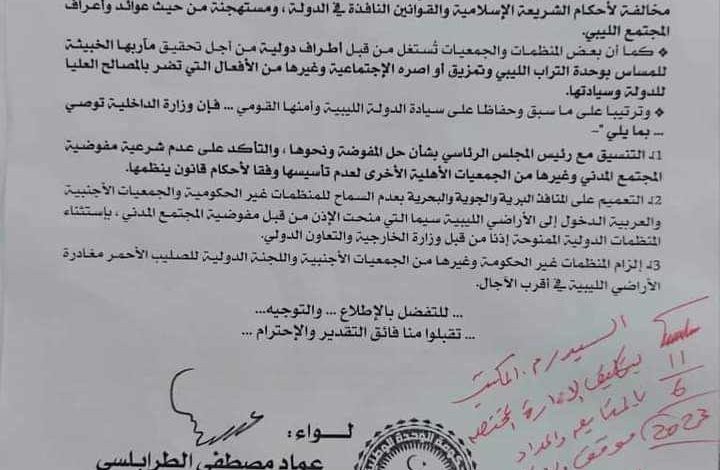 مخالفة لأحكام الشريعة الإسلامية والقوانين النافذة في الدولة ، ومستهجنة من حيث عوائد وأعراف
المجتمع الليبي.
❖ كما أن بعض المنظمات والجمعيات تُستغل من قبل اطراف دولية من أجل تحقيق مآربها الخبيثة
للمساس بوحدة التراب الليبي وتمزيق أو اصره الإجتماعية وغيرها من الأفعال التي تضر بالمصالح العليا
للدولة وسيادتها.
❖ وترتيبا على ما سبق وحفاظا على سيادة الدولة الليبية وأمنها القومي ... فإن وزارة الداخلية توصي
... بما يلي "..
1ـ التنسيق مع رئيس المجلس الرئاسي بشأن حل المفوضة ونحوها ، والتأكد على عدم شرعية مفوضية
المجتمع المدني وغيرها من الجمعيات الأهلية الأخرى لعدم تأسيسها وفقا لأحكام قانون ينظمها.
2ـ التعميم على المنافذ البرية والجوية والبحرية بعدم السماح للمنظمات غير الحكومية والجمعيات الأجنبية
والعربية الدخول إلى الأراضي الليبية سيما التي منحت الإذن من قبل مفوضية المجتمع المدني ، بإستثناء
المنظمات الدولية الممنوحة إذنا من قبل وزارة الخارجية والتعاون الدولي.
3ـ إلزام المنظمات غير الحكومة وغيرها من الجمعيات الأجنبية واللجنة الدولية للصليب الأحمر مغادرة
الأراضي الليبية في أقرب الآجال.
... للتفضل بالإطلاع ... والتوجيه...
... تقبلوا منا فائق التقدير والإحترام ...
السيد م. المكتب
11
6
2023
لواء:
عماد مصطفى الطرابلسي